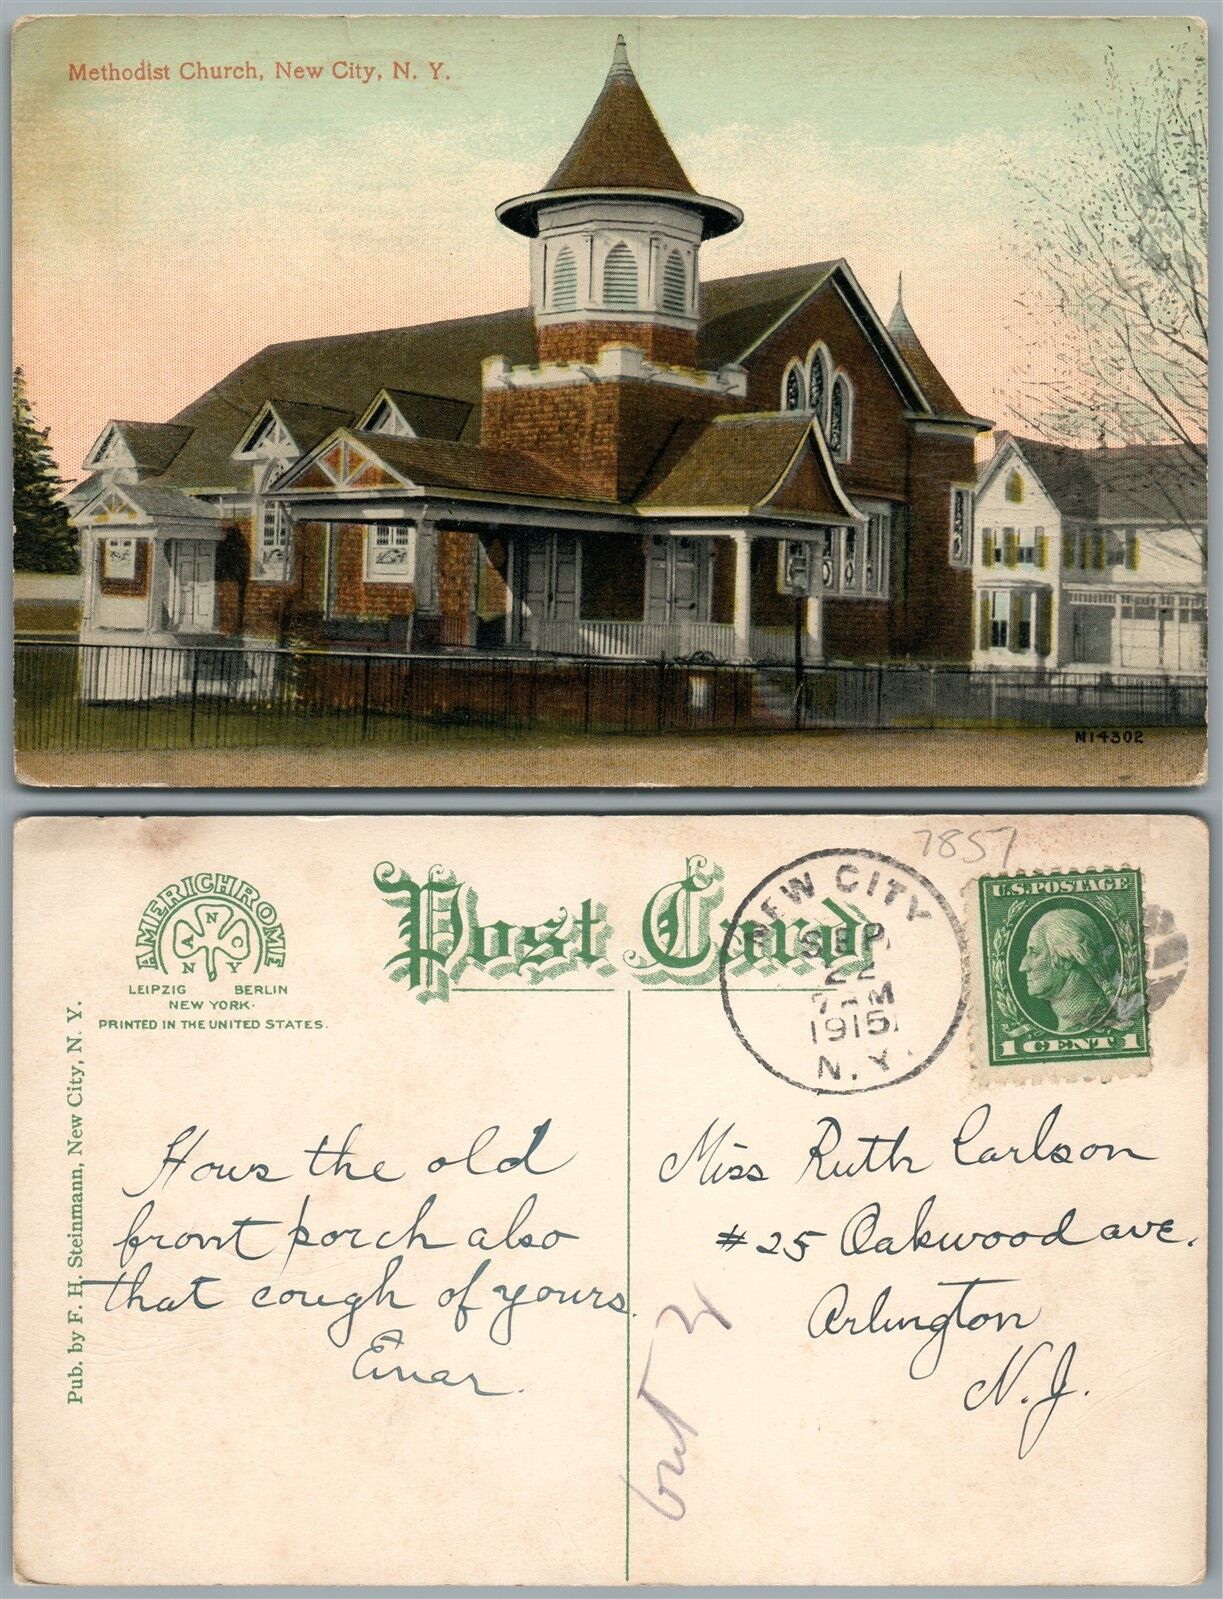 Methodist Church, New City, N. Y.
M14302
7857
AMERICHROME
N
A C
N Y
LEIPZIG BERLIN
NEW YORK.
PRINTED IN THE UNITED STATES.
Post Card
NEW CITY
SEP
22
7 AM
1915
N. Y.
U.S. POSTAGE
1 CENT 1
Pub. by F. H. Steinmann, New City, N. Y.
Hows the old
front porch also
that cough of yours.
Einar.
Miss Ruth Carlson
#25 Oakwood ave.
Arlington
N. J.